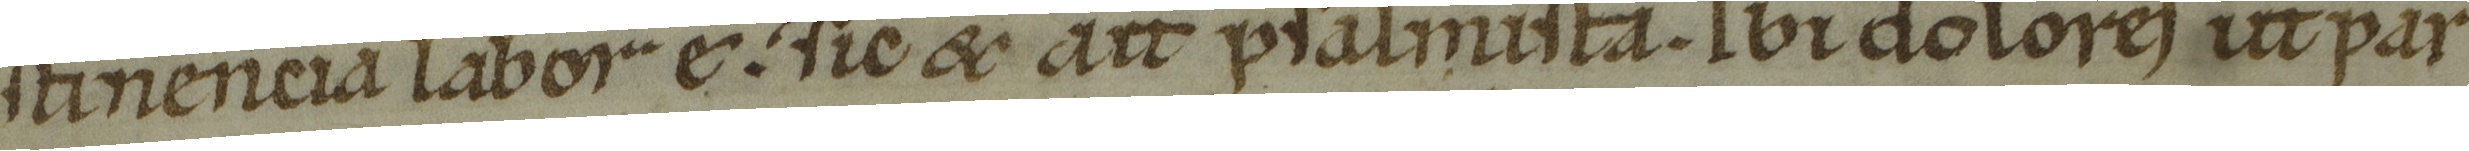 stinencia labor e. sic & ait psalmista. Ibi dolores ut par